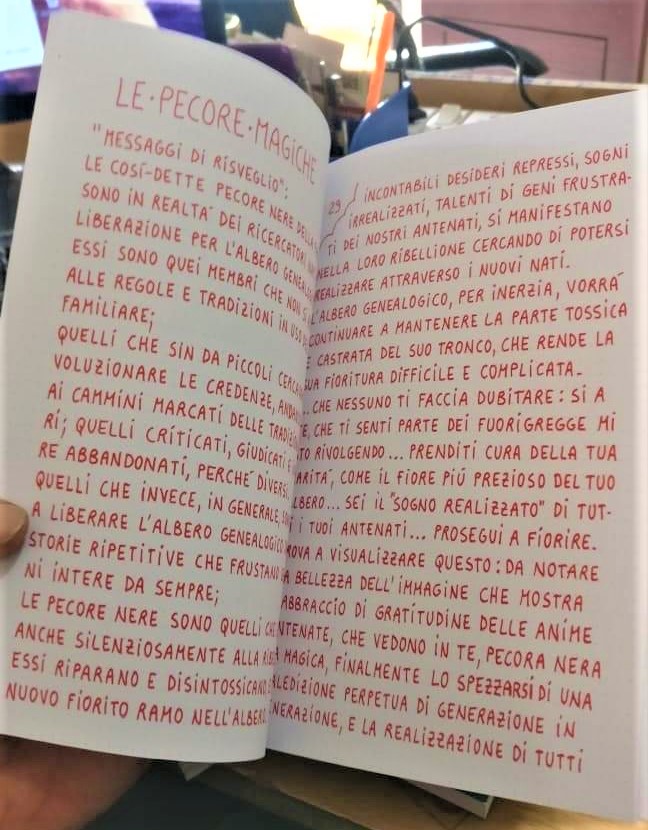 LE·PECORE·MAGICHE
"MESSAGGI DI RISVEGLIO":
LE COSÍ-DETTE PECORE NERE DELLA
SONO IN REALTA' DEI RICERCATORI
LIBERAZIONE PER L'ALBERO
ESSI SONO QUEI MEMBRI CHE NON SI
ALLE REGOLE E TRADIZIONI IN USO
FAMILIARE;
QUELLI CHE SIN DA PICCOLI
VOLUZIONARE LE CREDENZE,
AI CAMMINI MARCATI DELLE
RI; QUELLI CRITICATI, GIUDICATI E
RE ABBANDONATI, PERCHE' DIVERSI.
QUELLI CHE INVECE, IN GENERALE,
A LIBERARE L'ALBERO GENEALOGICO
STORIE RIPETITIVE CHE FRUSTANO
NI INTERE DA SEMPRE;
LE PECORE NERE SONO QUELLI CHE
ANCHE SILENZIOSAMENTE ALLA
ESSI RIPARANO E DISINTOSSICANO,
NUOVO FIORITO RAMO NELL'ALBERO
29
INCONTABILI DESIDERI REPRESSI, SOGNI
IRREALIZZATI, TALENTI DI GENI FRUSTRA-
TI DEI NOSTRI ANTENATI, SI MANIFESTANO
NELLA LORO RIBELLIONE CERCANDO DI POTERSI
REALIZZARE ATTRAVERSO I NUOVI NATI.
L'ALBERO GENEALOGICO, PER INERZIA, VORRA'
CONTINUARE A MANTENERE LA PARTE TOSSICA
E CASTRATA DEL SUO TRONCO, CHE RENDE LA
SUA FIORITURA DIFFICILE E COMPLICATA.
.. CHE NESSUNO TI FACCIA DUBITARE: SI A
TE, CHE TI SENTI PARTE DEI FUORIGREGGE MI
STO RIVOLGENDO... PRENDITI CURA DELLA TUA
RARITA', COME IL FIORE PIÚ PREZIOSO DEL TUO
ALBERO... SEI IL "SOGNO REALIZZATO" DI TUT-
TI I TUOI ANTENATI... PROSEGUI A FIORIRE.
PROVA A VISUALIZZARE QUESTO: DA NOTARE
LA BELLEZZA DELL'IMMAGINE CHE MOSTRA
ABBRACCIO DI GRATITUDINE DELLE ANIME
ANTENATE, CHE VEDONO IN TE, PECORA NERA
E MAGICA, FINALMENTE LO SPEZZARSI DI UNA
MALEDIZIONE PERPETUA DI GENERAZIONE IN
GENERAZIONE, E LA REALIZZAZIONE DI TUTTI